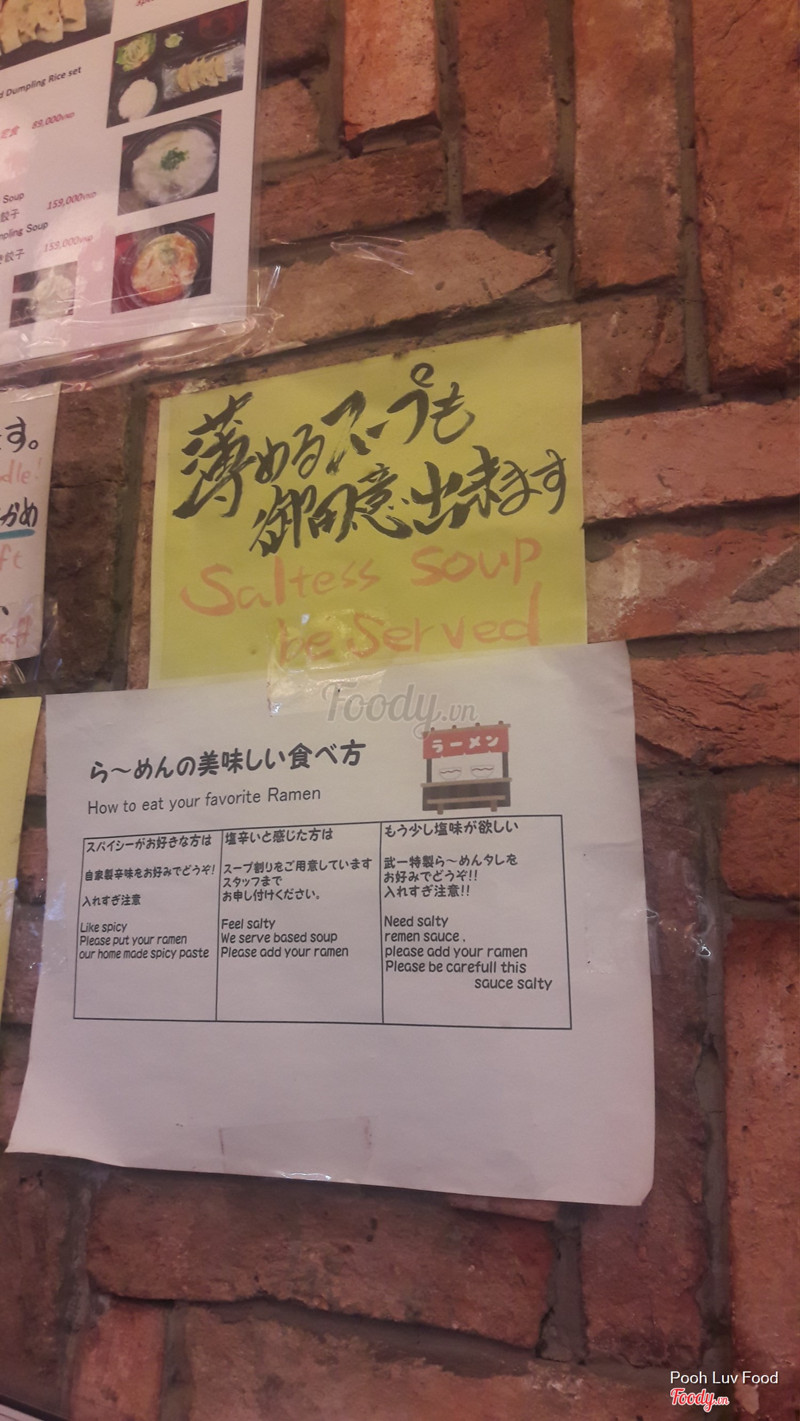 d Dumpling Rice set
定食 89,000VND
Soup
餃子 159,000VND
mpling Soup
餃子 159,000VND
す。
dle!
かめ
ft
aff
薄めるスープも
御用意出来ます
Saltess soup
be served
Foody.vn
ラーメン
ら〜めんの美味しい食べ方
How to eat your favorite Ramen
スパイシーがお好きな方は
自家製辛味をお好みでどうぞ!
入れすぎ注意
Like spicy
Please put your ramen
our home made spicy paste
塩辛いと感じた方は
スープ割りをご用意しています
スタッフまで
お申し付けください。
Feel salty
We serve based soup
Please add your ramen
もう少し塩味が欲しい
武一特製ら〜めんタレを
お好みでどうぞ!!
入れすぎ注意!!
Need salty
remen sauce ,
please add your ramen
Please be carefull this
sauce salty
Pooh Luv Food
Foody.vn